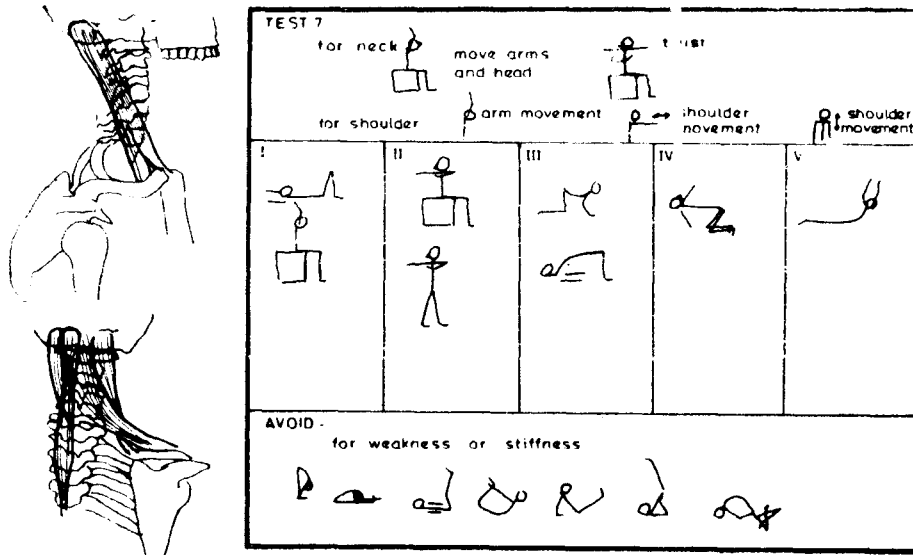 TEST 7
for neck
move arms
and head
twist
for shoulder
arm movement
shoulder
movement
shoulder
movement
I II III IV V
AVOID -
for weakness or stiffness